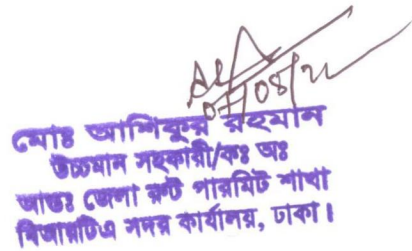 07/08/22
মোঃ আশিকুর রহমান
উচ্চমান সহকারী/কঃ অঃ
আন্তঃ জেলা রুট পারমিট শাখা
বিআরটিএ সদর কার্যালয়, ঢাকা।